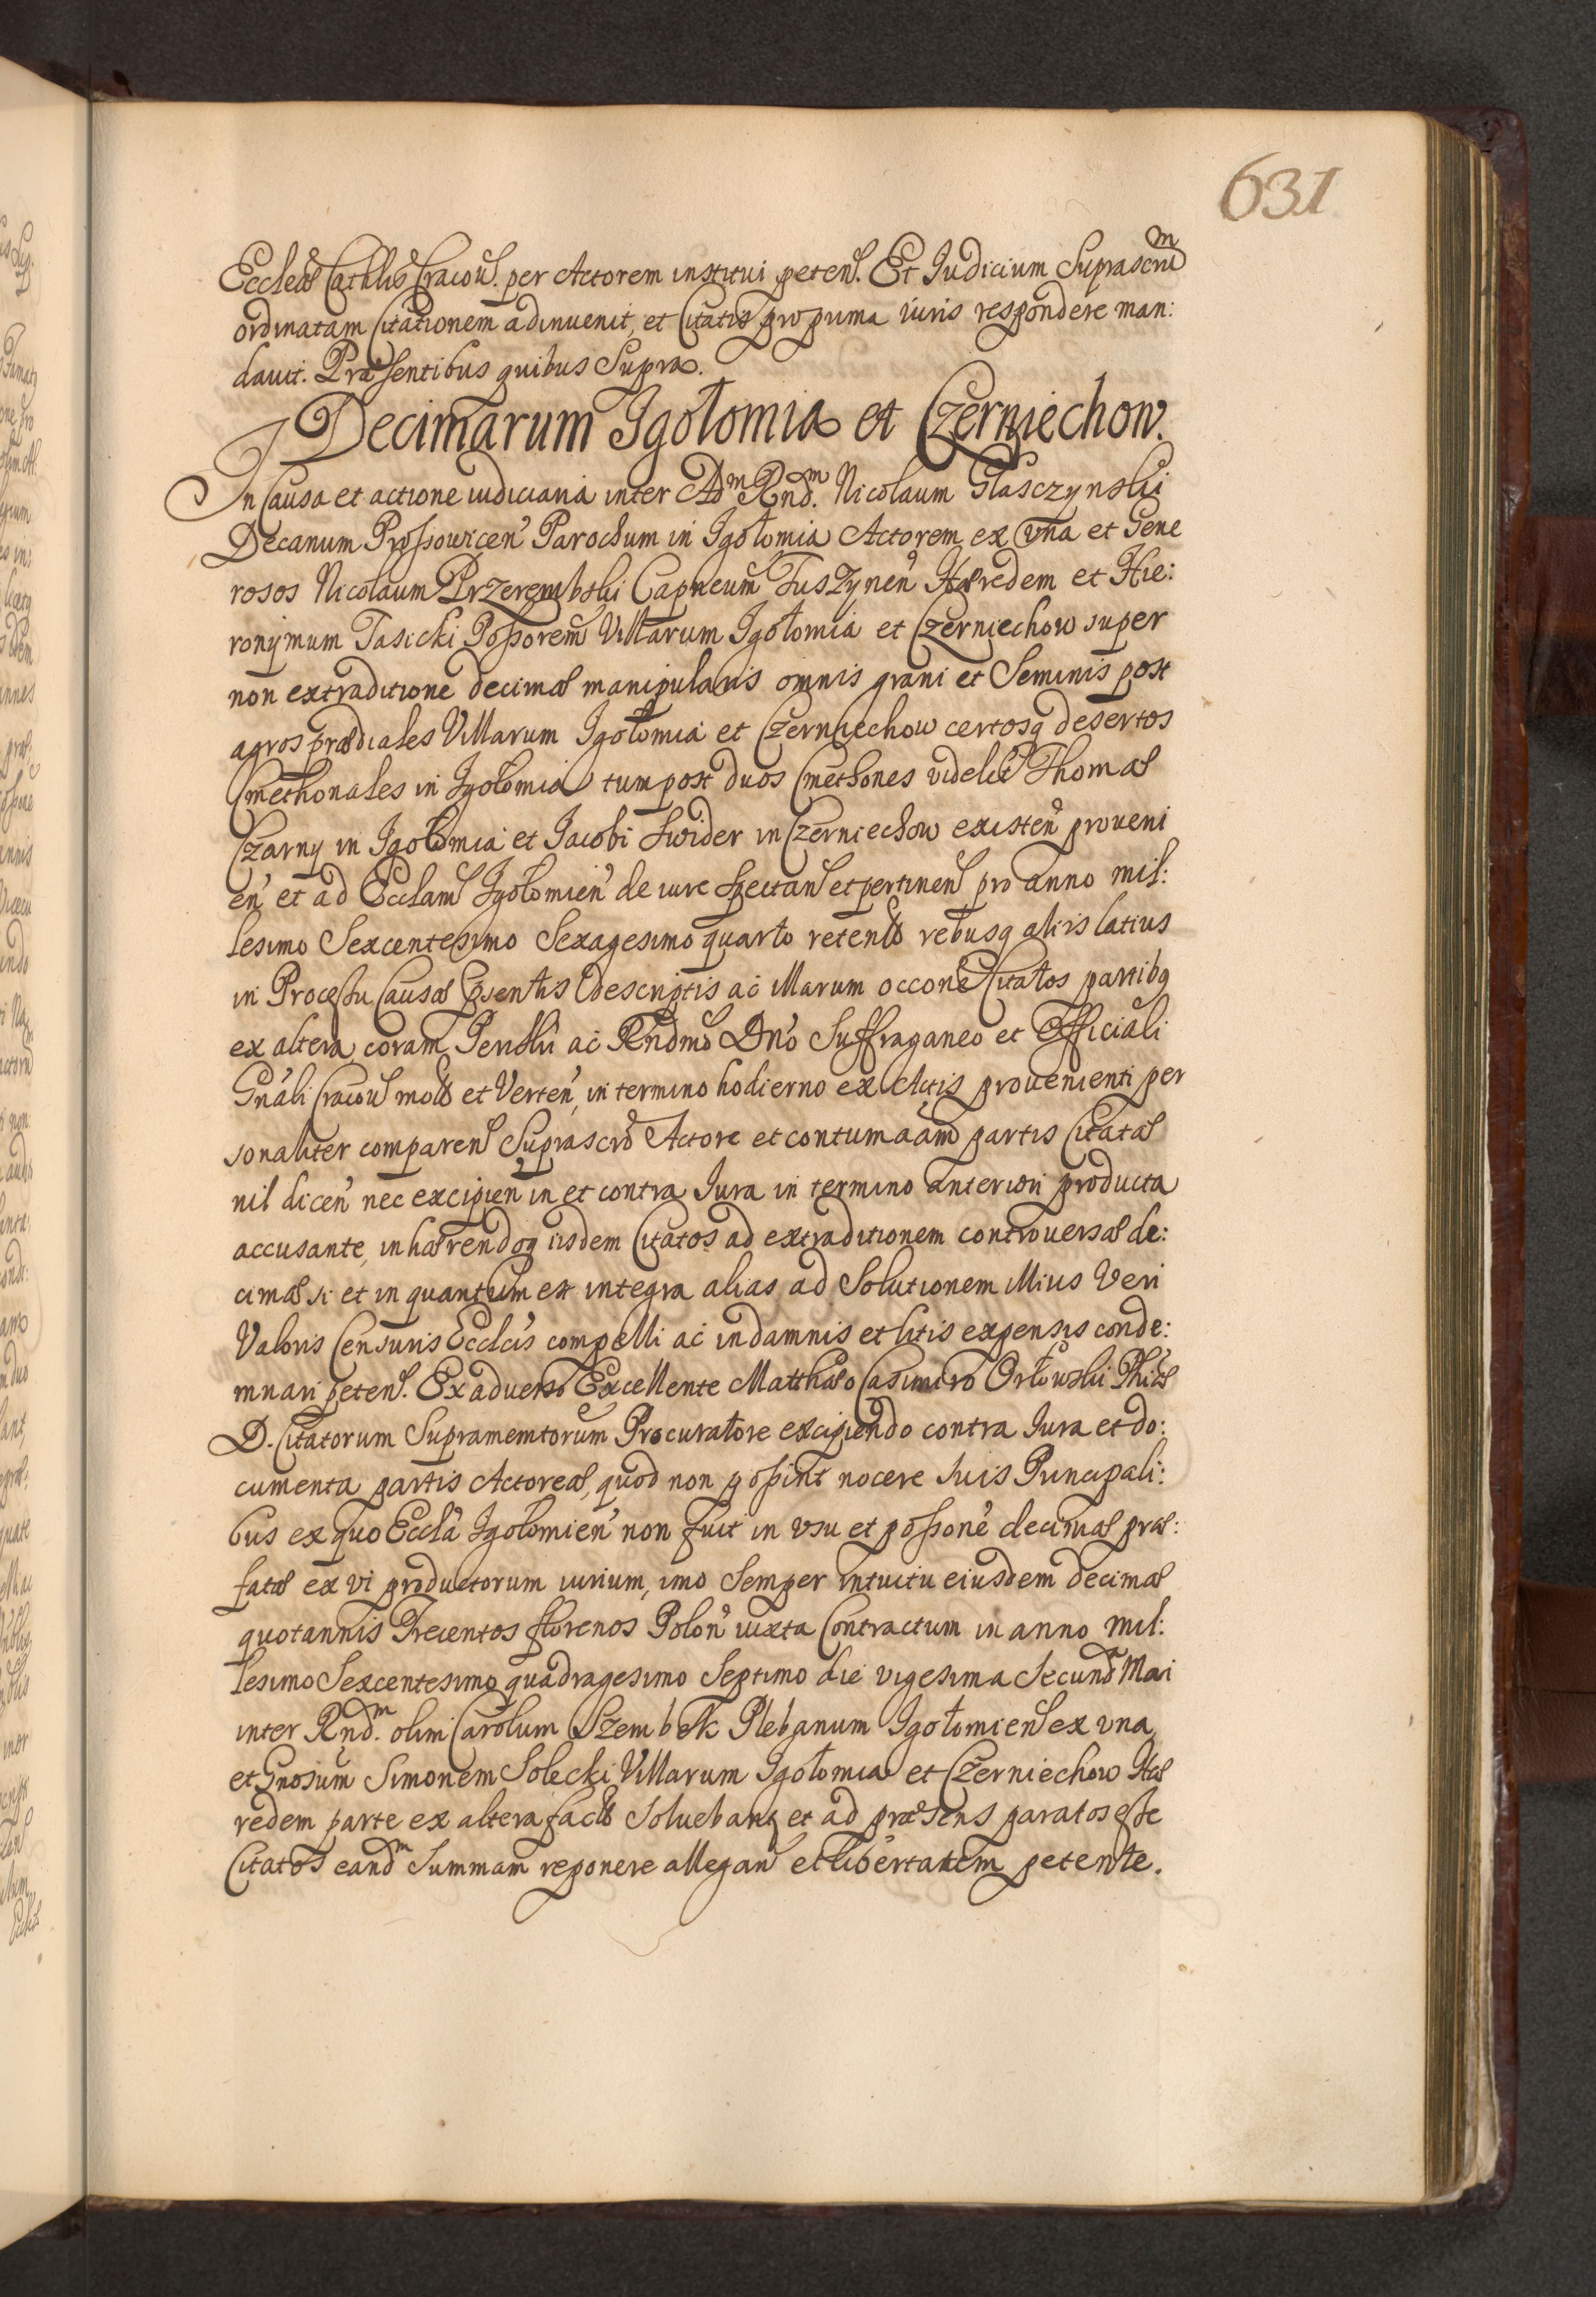 631
Eccleæ Cathlis Cracou. per Actorem institui petens. Et Iudicium Suprascrm
ordinatam Citationem adinuenit, et Citatis pro prima iuris respondere man:
dauit. Præsentibus quibus Supra.
Decimarum Igołomia et Czerniechow.
In Causa et actione iudiciaria inter Adm Rndm. Nicolaum Glasczynski
Decanum Prossouicen Parochum in Igołomia Actorem ex vna et Gene
rosos Nicolaum Przerembski Capneum Fuszynen Hæredem et Hie:
ronymum Tasicki Possorem Villarum Igołomia et Czerniechow super
non extraditione decimæ manipularis omnis grani et Seminis post
agros prædiales Villarum Igołomia et Czerniechow certosq desertos
Cmethonales in Igołomia tum post duos Cmethones videlit Thomæ
Czarny in Igołomia et Iacobi Swider in Czerniechow existen proueni
en et ad Ecclam Igołomien de iure spectan et pertinen pro anno mil:
lesimo Sexcentesimo Sexagesimo quarto retenta rebusq aliis latius
in Processu Causæ psentis descriptis ac illarum occone Citatos partibq
ex altera coram Perilli ac Rndmo Dno Suffraganeo et Officiali
Gnali Cracou mota et Verten, in termino hodierno ex Actis prouenienti per
sonaliter comparen Suprascro Actore et contumaciam partis Citatæ
nil dicen nec excipien in et contra Iura in termino anteriori producta
accusante, inhærendoq iisdem Citatos ad extraditionem controuersæ de:
cimæ si et in quantum est integra alias ad Solutionem illius Veri
Valoris Censuris Ecclcis compelli ac in damnis et litis expensis conde:
mnari peten. Ex aduerso Excellente Matthæo Casimiro Orłowski Phiæ
D. Citatorum Supramemtorum Procuratore excipiendo contra Iura et do:
cumenta partis Actoreæ, quod non possint nocere suis Principali:
bus ex quo Eccla Igołomien non fuit in vsu et possone decimæ præ:
fatæ ex vi productorum iurium, imo Semper intuitu eiusdem decimæ
quotannis Trecentos florenos Polon iuxta Contractum in anno mil:
lesimo Sexcentesimo quadragesimo Septimo die vigesima Secunda Maii
inter Rndm. olim Carolum Szembek Plebanum Igołomien ex vna
et Gnosum Simonem Solecki Villarum Igołomia et Czerniechow Hæ
redem parte ex altera facto Soluebant et ad præsens paratos esse
Citatos eandm Summam reponere allegan et libertatem petente.